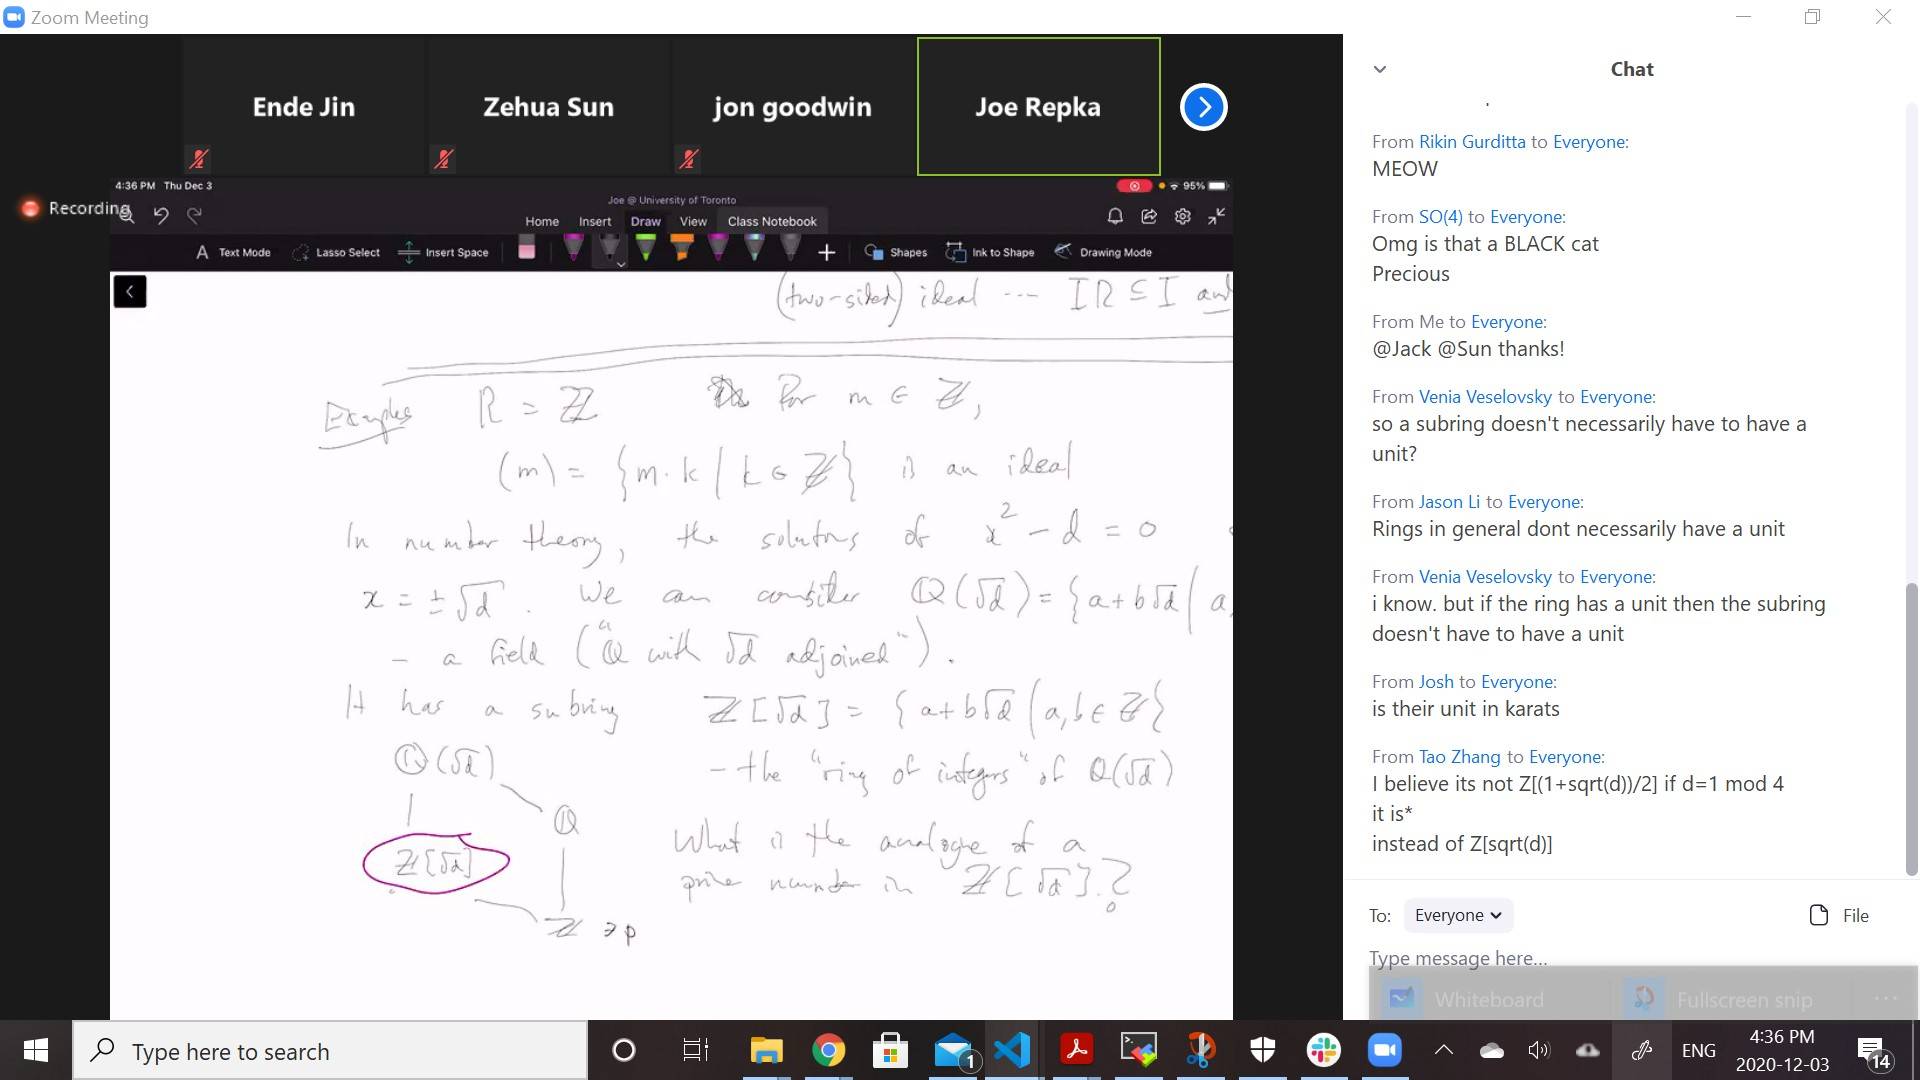 Zoom Meeting
Ende Jin
Zehua Sun
jon goodwin
Joe Repka
Recording
4:36 PM Thu Dec 3
95%
Joe @ University of Toronto
Home Insert Draw View Class Notebook
Text Mode Lasso Select Insert Space Shapes Ink to Shape Drawing Mode
(two-sided) ideal --- IR ⊆ I and
Examples R = ℤ For m ∈ ℤ,
(m) = {m·k | k ∈ ℤ} is an ideal
In number theory, the solutions of x² - d = 0
x = ±√d. We can consider ℚ(√d) = {a+b√d | a,
- a field ("ℚ with √d adjoined").
It has a subring ℤ[√d] = {a+b√d | a,b ∈ ℤ}
- the "ring of integers" of ℚ(√d)
ℚ(√d)
ℚ
ℤ[√d]
ℤ ∋ p
What is the analogue of a
prime number in ℤ[√d]?
Chat
From Rikin Gurditta to Everyone:
MEOW
From SO(4) to Everyone:
Omg is that a BLACK cat
Precious
From Me to Everyone:
@Jack @Sun thanks!
From Venia Veselovsky to Everyone:
so a subring doesn't necessarily have to have a
unit?
From Jason Li to Everyone:
Rings in general dont necessarily have a unit
From Venia Veselovsky to Everyone:
i know. but if the ring has a unit then the subring
doesn't have to have a unit
From Josh to Everyone:
is their unit in karats
From Tao Zhang to Everyone:
I believe its not Z[(1+sqrt(d))/2] if d=1 mod 4
it is*
instead of Z[sqrt(d)]
To: Everyone File
Type message here...
Whiteboard Fullscreen snip
Type here to search
1
ENG
4:36 PM
2020-12-03
14